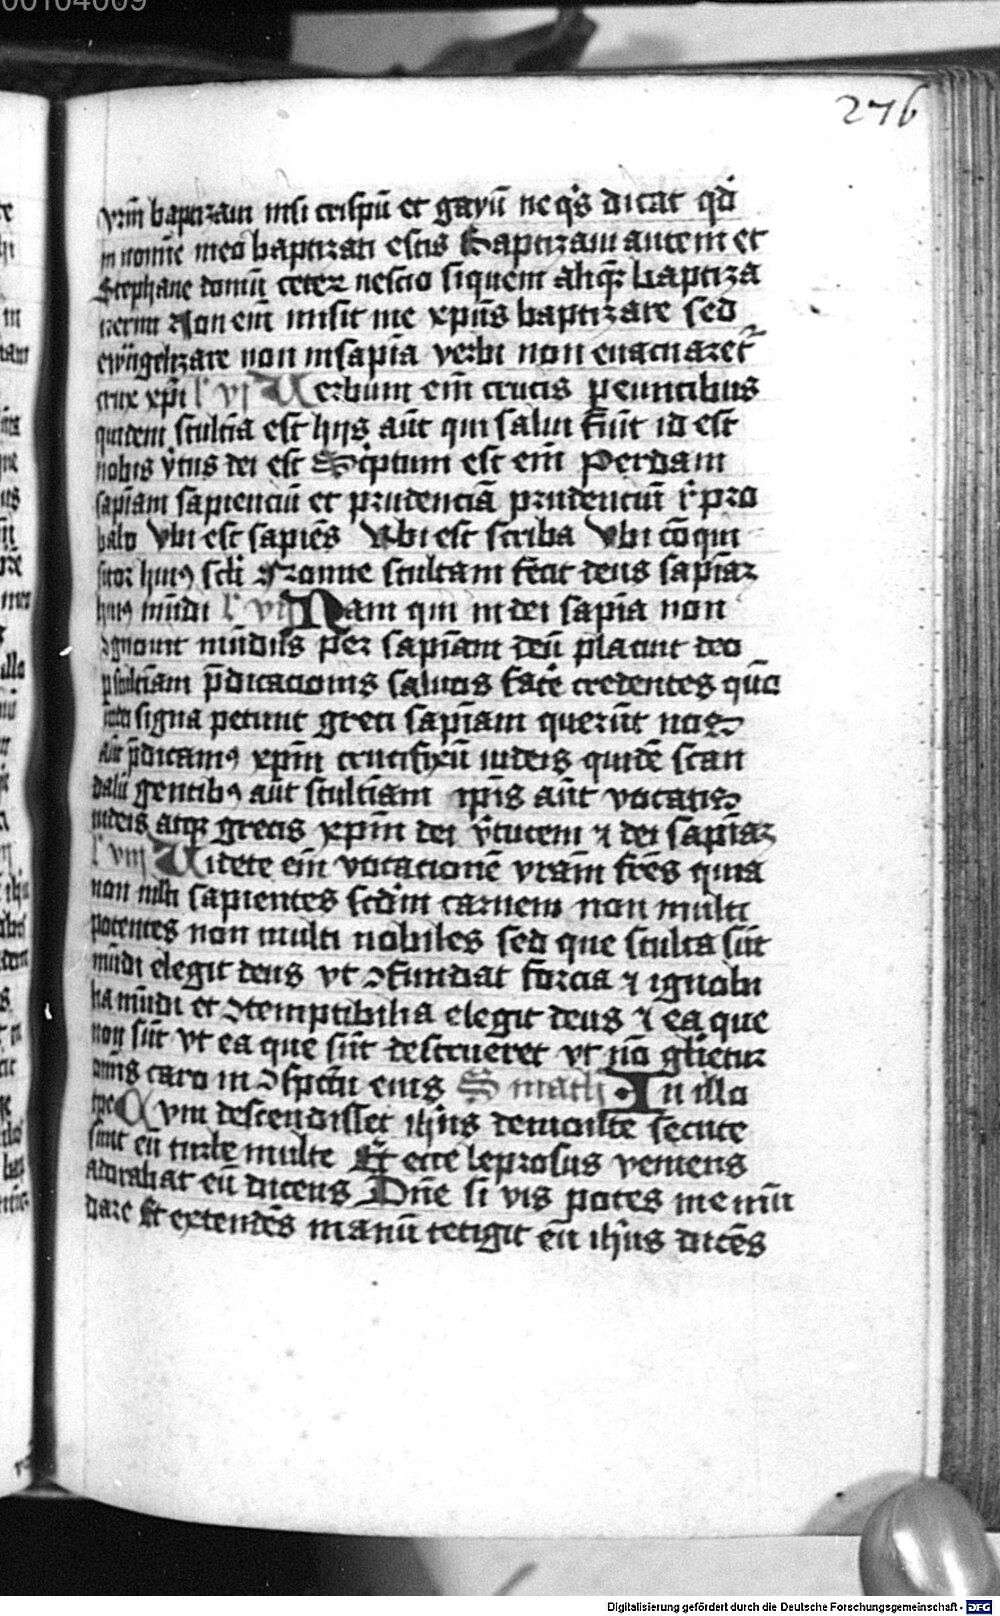 00104009
276
vr̄m baptizaui nisi crispū et gayū ne q̇s dicat qḋ
in noīe meo baptizati estis Baptizaui autem et
Stephane domū ceteꝝ nescio siquem aliq̄ꝫ baptiza
uerim Non em̄ misit me xp̄us baptizare sed
ewāgelizare non in sapīa verbi non euacuaret᷑
crux xp̄i l' vi Uerbum em̄ crucis peuntibus
quidem stultīa est hijs aūt qui salui fiūt id est
nobis v̄tus dei est Sc̄ptum est em̄ Perdam
sapīam sapienciū et prudenciā prudenciū r̄pro
babo Vbi est sapiēs Vbi est scriba Vbi cōqui
sitor huiꝰ scl̄i Nonne stultam fecit deus sapīaꝫ
huiꝰ mūdi l' vij Nam qui in dei sapīa non
ꝯgnouit mūdus per sapīam deū placuit deo
p stultīam p̄dicacionis saluos fac̄e credentes qm̄
iudei signa petunt greci sapīam querūt nos
aūt p̄dicamꝰ xpm̄ crucifixū iudeis quidē scan
dalū gentibꝰ aūt stultīam ip̄is aūt vocatis
iudeis atqꝫ grecis xpm̄ dei v̄tutem ⁊ dei sapīaꝫ
l' viij Uidete em̄ vocacionē vr̄am fr̄es quia
non mlti sapientes scd̄m carnem non multi
potentes non multi nobiles sed que stulta sūt
mūdi elegit deus vt ꝯfundat forcia ⁊ ignobi
lia mūdi et ꝯtemptibilia elegit deus ⁊ ea que
non sūt vt ea que sūt destrueret vt nō gl̄ietur
om̄is caro in ꝯspc̄tu eius S math In illo
tp̄e Cum descendisset ih̄us de monte secute
sunt eū turbe multe Et ecce leprosus veniens
adorabat eū dicens Dn̄e si vis potes me mū
dare Et extendēs manū tetigit eū ih̄us dicēs
Digitalisierung gefördert durch die Deutsche Forschungsgemeinschaft - DFG